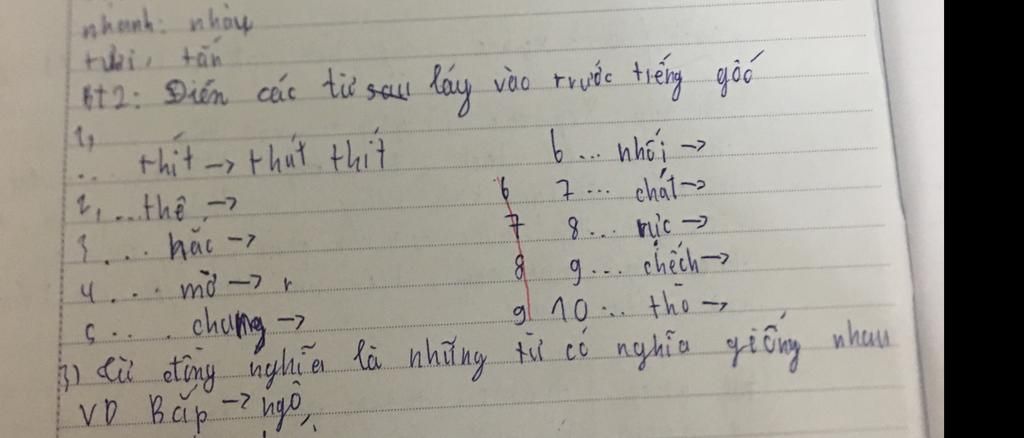 nhanh: nhảy
tươi, tắn
Bt2: Điền các từ sau láy vào trước tiếng gốc
1,
.. thít -> thút thít
2, ...thê ->
3 .... hắc ->
4 .... mờ -> r
5 .... chung ->
6 ... nhối ->
6
7 ... chát ->
7
8 ... rực ->
8
9 ... chếch ->
9
10 ... thò ->
3) từ đồng nghĩa là những từ có nghĩa giống nhau
VD Bắp -> ngô,